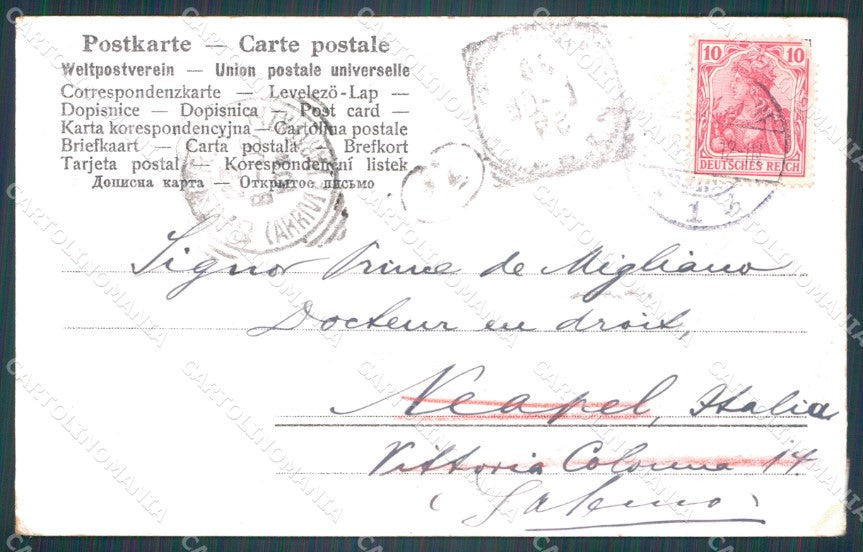 Postkarte — Carte postale
Weltpostverein — Union postale universelle
Correspondenzkarte — Levelező-Lap —
Dopisnice — Dopisnica — Post card —
Karta korespondencyjna — Cartolina postale
Briefkaart — Carta postala — Brefkort
Tarjeta postal — Korespondenční listek
Дописна карта — Открытое письмо
10 10
DEUTSCHES REICH
(ARRIVI
1
Signor Prince de Migliano
Docteur en droit,
Neapel, Italia
Vittoria Colonna 14
(Salerno)
CARTOLINOMANIA